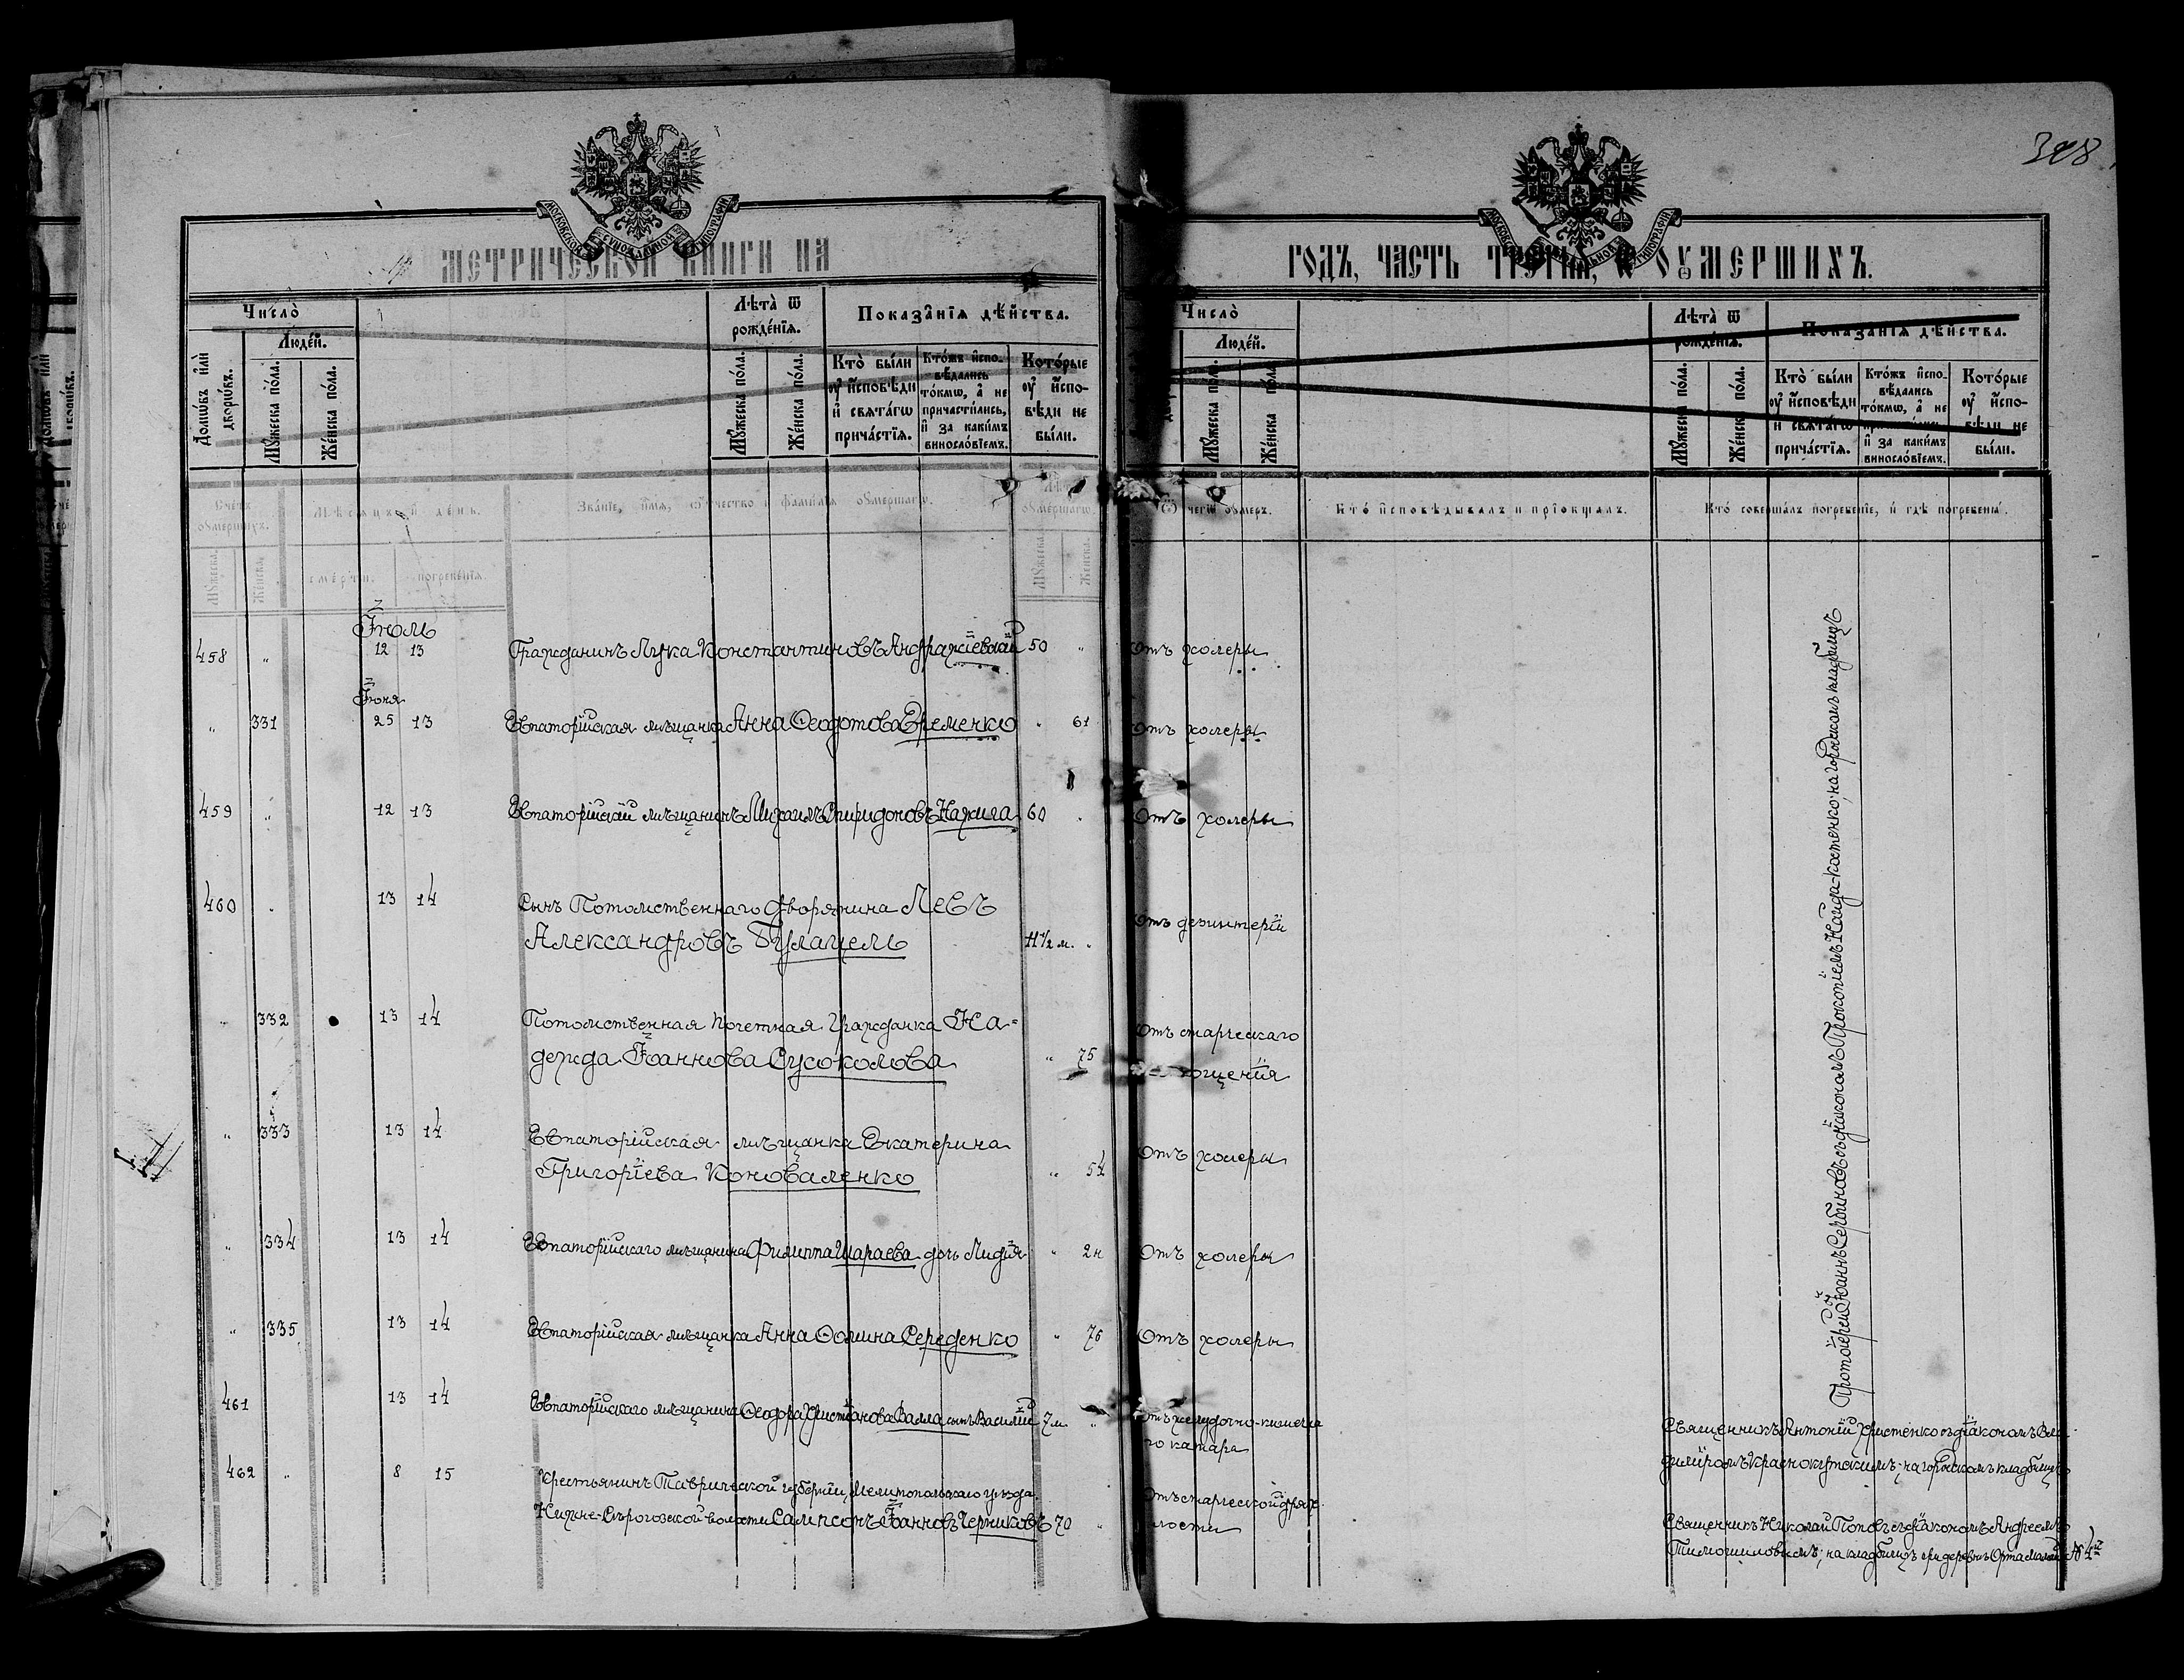 318
МЕТРИЧЕСКОЙ КНИГИ НА
ГОДЪ, ЧАСТЬ ТРЕТІѦ, Ѡ ОУМЕРШИХЪ.
Число̀
Люде́й.
Домѡ́въ и҆лѝ дворѡ́въ.
Мꙋ́жеска по́ла.
Же́нска по́ла.
Лѣта̀ ѿ рожде́нїѧ.
Мꙋ́жеска по́ла.
Же́нска по́ла.
Показа̑нїѧ дѣ́йства.
Кто̀ бы́ли оу҆ и҆сповѣди и҆ свѧта́гѡ прича́стїѧ.
Кто́жъ и҆сповѣдались то́кмѡ, а҆ не причасти́лись, и҆ за каки́мъ винослові́емъ.
Кото́рые оу҆ и҆сповѣди не бы́ли.
Счетъ оумершихъ.
Мѣсѧцъ и день.
Званїе, имѧ, ѿчество и фамилїѧ оумершагѡ.
Лѣта оумершагѡ.
Мꙋжеска.
Женска.
смерти.
погребенїѧ.
Мꙋжеска.
Женска.
Число̀
Люде́й.
Мꙋ́жеска по́ла.
Же́нска по́ла.
Лѣта̀ ѿ рожде́нїѧ.
Мꙋ́жеска по́ла.
Же́нска по́ла.
Показа̑нїѧ дѣ́йства.
Кто̀ бы́ли оу҆ и҆сповѣди и҆ свѧта́гѡ прича́стїѧ.
Кто́жъ и҆сповѣдались то́кмѡ, а҆ не причасти́лись, и҆ за каки́мъ винослові́емъ.
Кото́рые оу҆ и҆сповѣди не бы́ли.
Ѿ чегѡ оумеръ.
Кто исповѣдывалъ и прїобщалъ.
Кто совершалъ погребенїе, и гдѣ погребены.
Іюль
458 " 12 13 Гражданинъ Лука Константиновъ Андражіевскій 50 " Отъ холеры
Іюня
" 331 25 13 Евпаторійская мѣщанка Анна Ѳеодотова Еременко " 61 Отъ холеры
459 " 12 13 Евпаторійскій мѣщанинъ Михаилъ Спиридоновъ Нажига 60 " Отъ холеры
460 " 13 14 Сынъ Потомственнаго дворянина Левъ
Александровъ Булацель 11½ м. " Отъ дезинтеріи
" 332 13 14 Потомственная почетная гражданка На=
дежда Іоаннова Сусоколова " 75 Отъ старческаго
истощенія
" 333 13 14 Евпаторійская мѣщанка Екатерина
Григоріева Коноваленко " 54 Отъ холеры
" 334 13 14 Евпаторійскаго мѣщанина Филиппа Шараева дочь Лидія " 2н Отъ холеры
" 335 13 14 Евпаторійская мѣщанка Анна Ѳомина Середенко " 76 Отъ холеры
461 13 14 Евпаторійскаго мѣщанина Ѳеодора Христіанова Валла сынъ Василій 7м. " Отъ желудочно-кишечна
го катара
462 " 8 15 Крестьянинъ Таврической губерніи, Мелитопольскаго уѣзда
Нижне-Сѣрогозской волости Сампсонъ Іоанновъ Черниковъ 70 " Отъ старческой дрях
лости
Протоіерей Іоаннъ Сербиновъ съ діакономъ Прокопіемъ Найда-Костенко; на городскомъ кладбищѣ
Священникъ Антоній Христенко съ діакономъ Вла
диміромъ Краснокутскимъ; на городскомъ кладбищѣ
Священникъ Николай Поповъ съ діакономъ Андреемъ
Тимошиловымъ; на кладбищѣ при деревнѣ Орта Мамай №4й